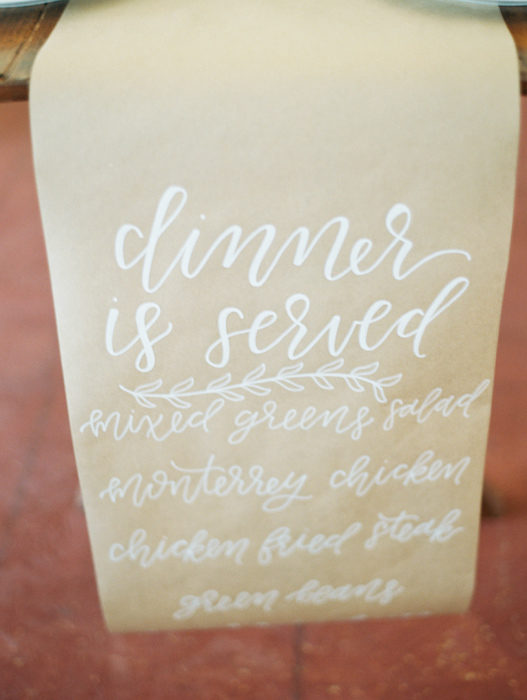 dinner
is served
mixed greens salad
monterrey chicken
chicken fried steak
green beans